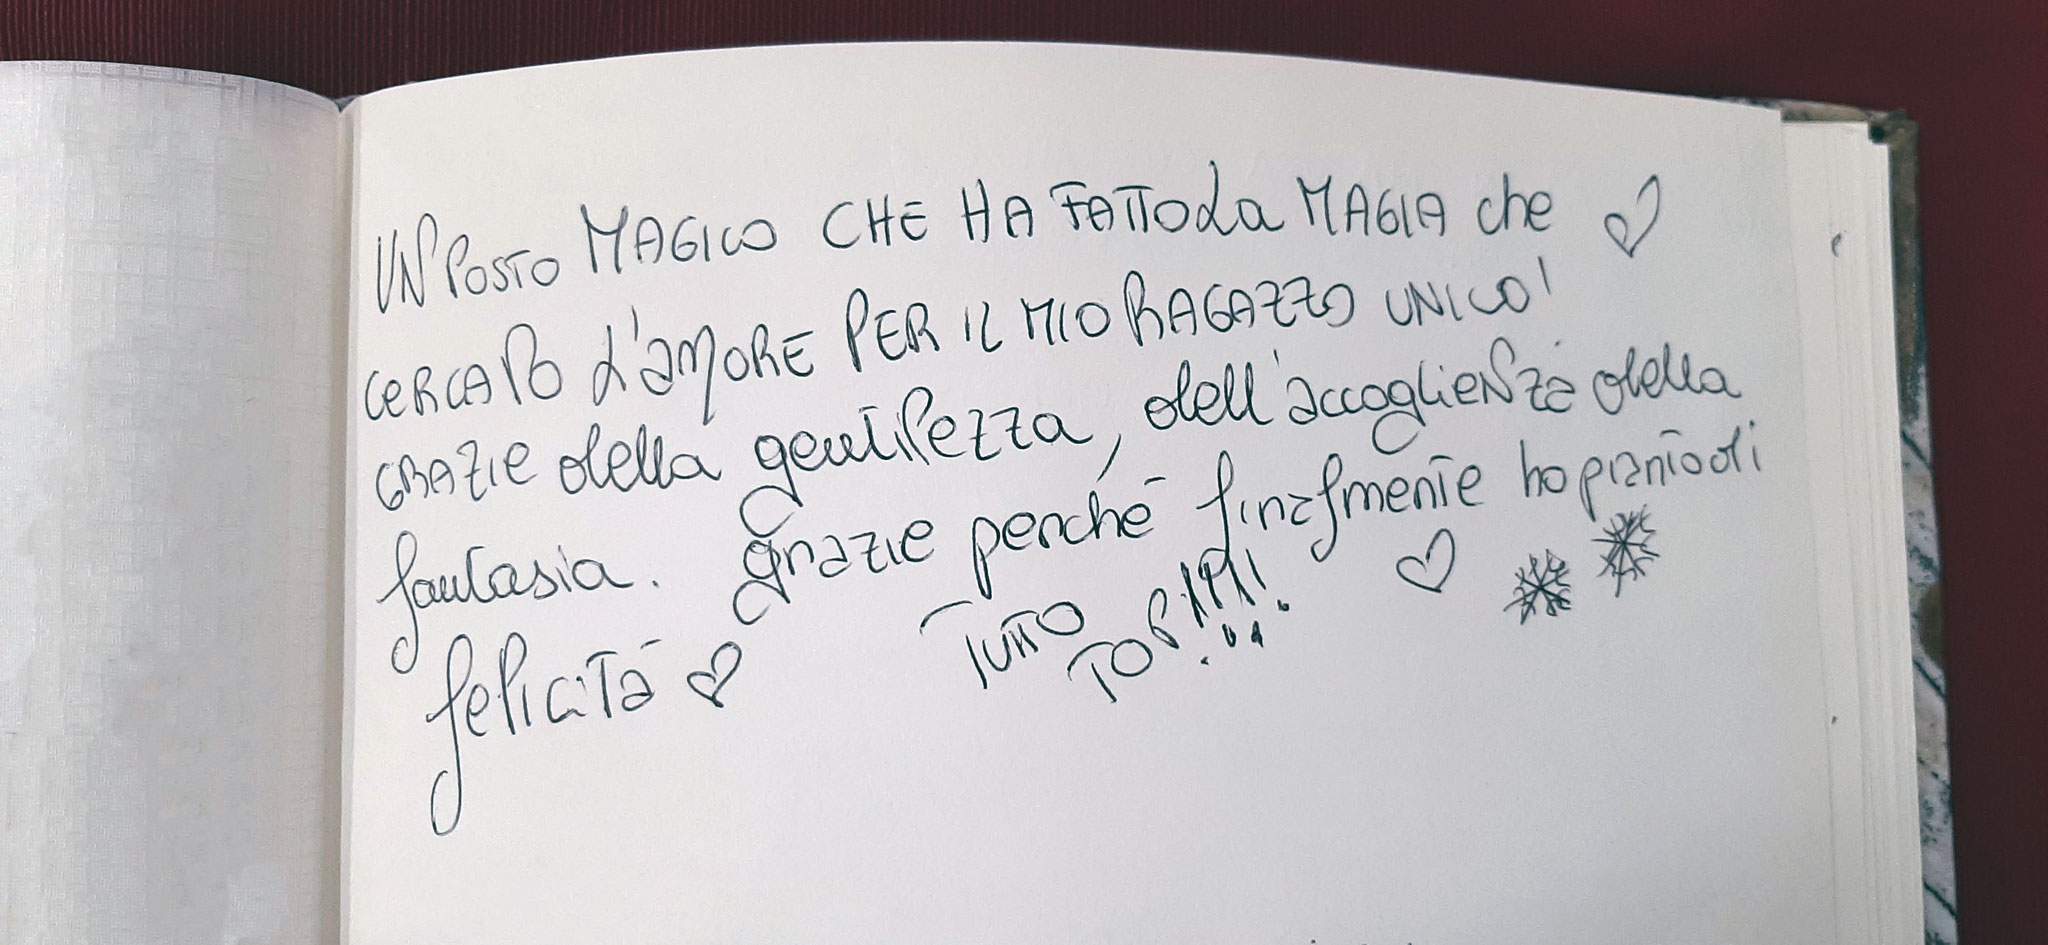 UN POSTO MAGICO CHE HA FATTO La MAGIA che
CERCAVO L'AMORE PER IL MIO RAGAZZO UNICO!
GRAZIE della gentilezza, dell'accoglienza della
fantasia. grazie perché finalmente ho pianto di
felicità
TUTTO
TOP!!!!